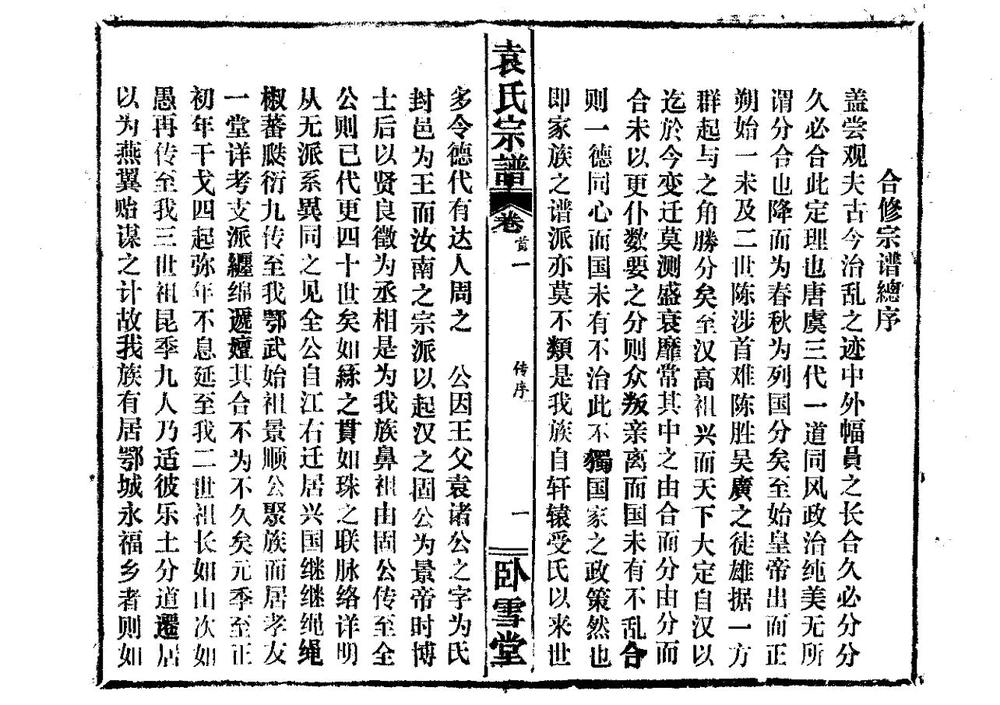 合修宗谱總序
盖尝观夫古今治乱之迹中外幅員之长合久必分分
久必合此定理也唐虞三代一道同风政治纯美无所
谓分合也降而为春秋为列国分矣至始皇帝出而正
朔始一未及二世陈涉首难陈胜吴廣之徒雄据一方
群起与之角勝分矣至汉高祖兴而天下大定自汉以
迄於今变迁莫测盛衰靡常其中之由合而分由分而
合未以更仆数要之分则众叛亲离而国未有不乱合
则一德同心而国未有不治此不獨国家之政策然也
即家族之谱派亦莫不類是我族自轩辕受氏以来世
袁氏宗譜
卷
首一
传序
一
卧雪堂
多令德代有达人周之 公因王父袁诸公之字为氏
封邑为王而汝南之宗派以起汉之固公为景帝时博
士后以贤良徵为丞相是为我族鼻祖由固公传至全
公则已代更四十世矣如絲之貫如珠之联脉络详明
从无派系異同之见全公自江右迁居兴国继继绳绳
椒蕃瓞衍九传至我鄂武始祖景顺公聚族而居孝友
一堂详考支派纏绵遞嬗其合不为不久矣元季至正
初年干戈四起弥年不息延至我二世祖长如山次如
愚再传至我三世祖昆季九人乃适彼乐土分道遷居
以为燕翼贻谋之计故我族有居鄂城永福乡者则如